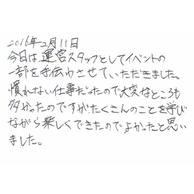 2016年2月11日
今日は運営スタッフとしてイベントの
一部を手伝わさせていただきました。
慣れない仕事だったので大変なところも
多かったのですがたくさんのことを学び
ながら楽しくできたのでよかったと思い
ました。